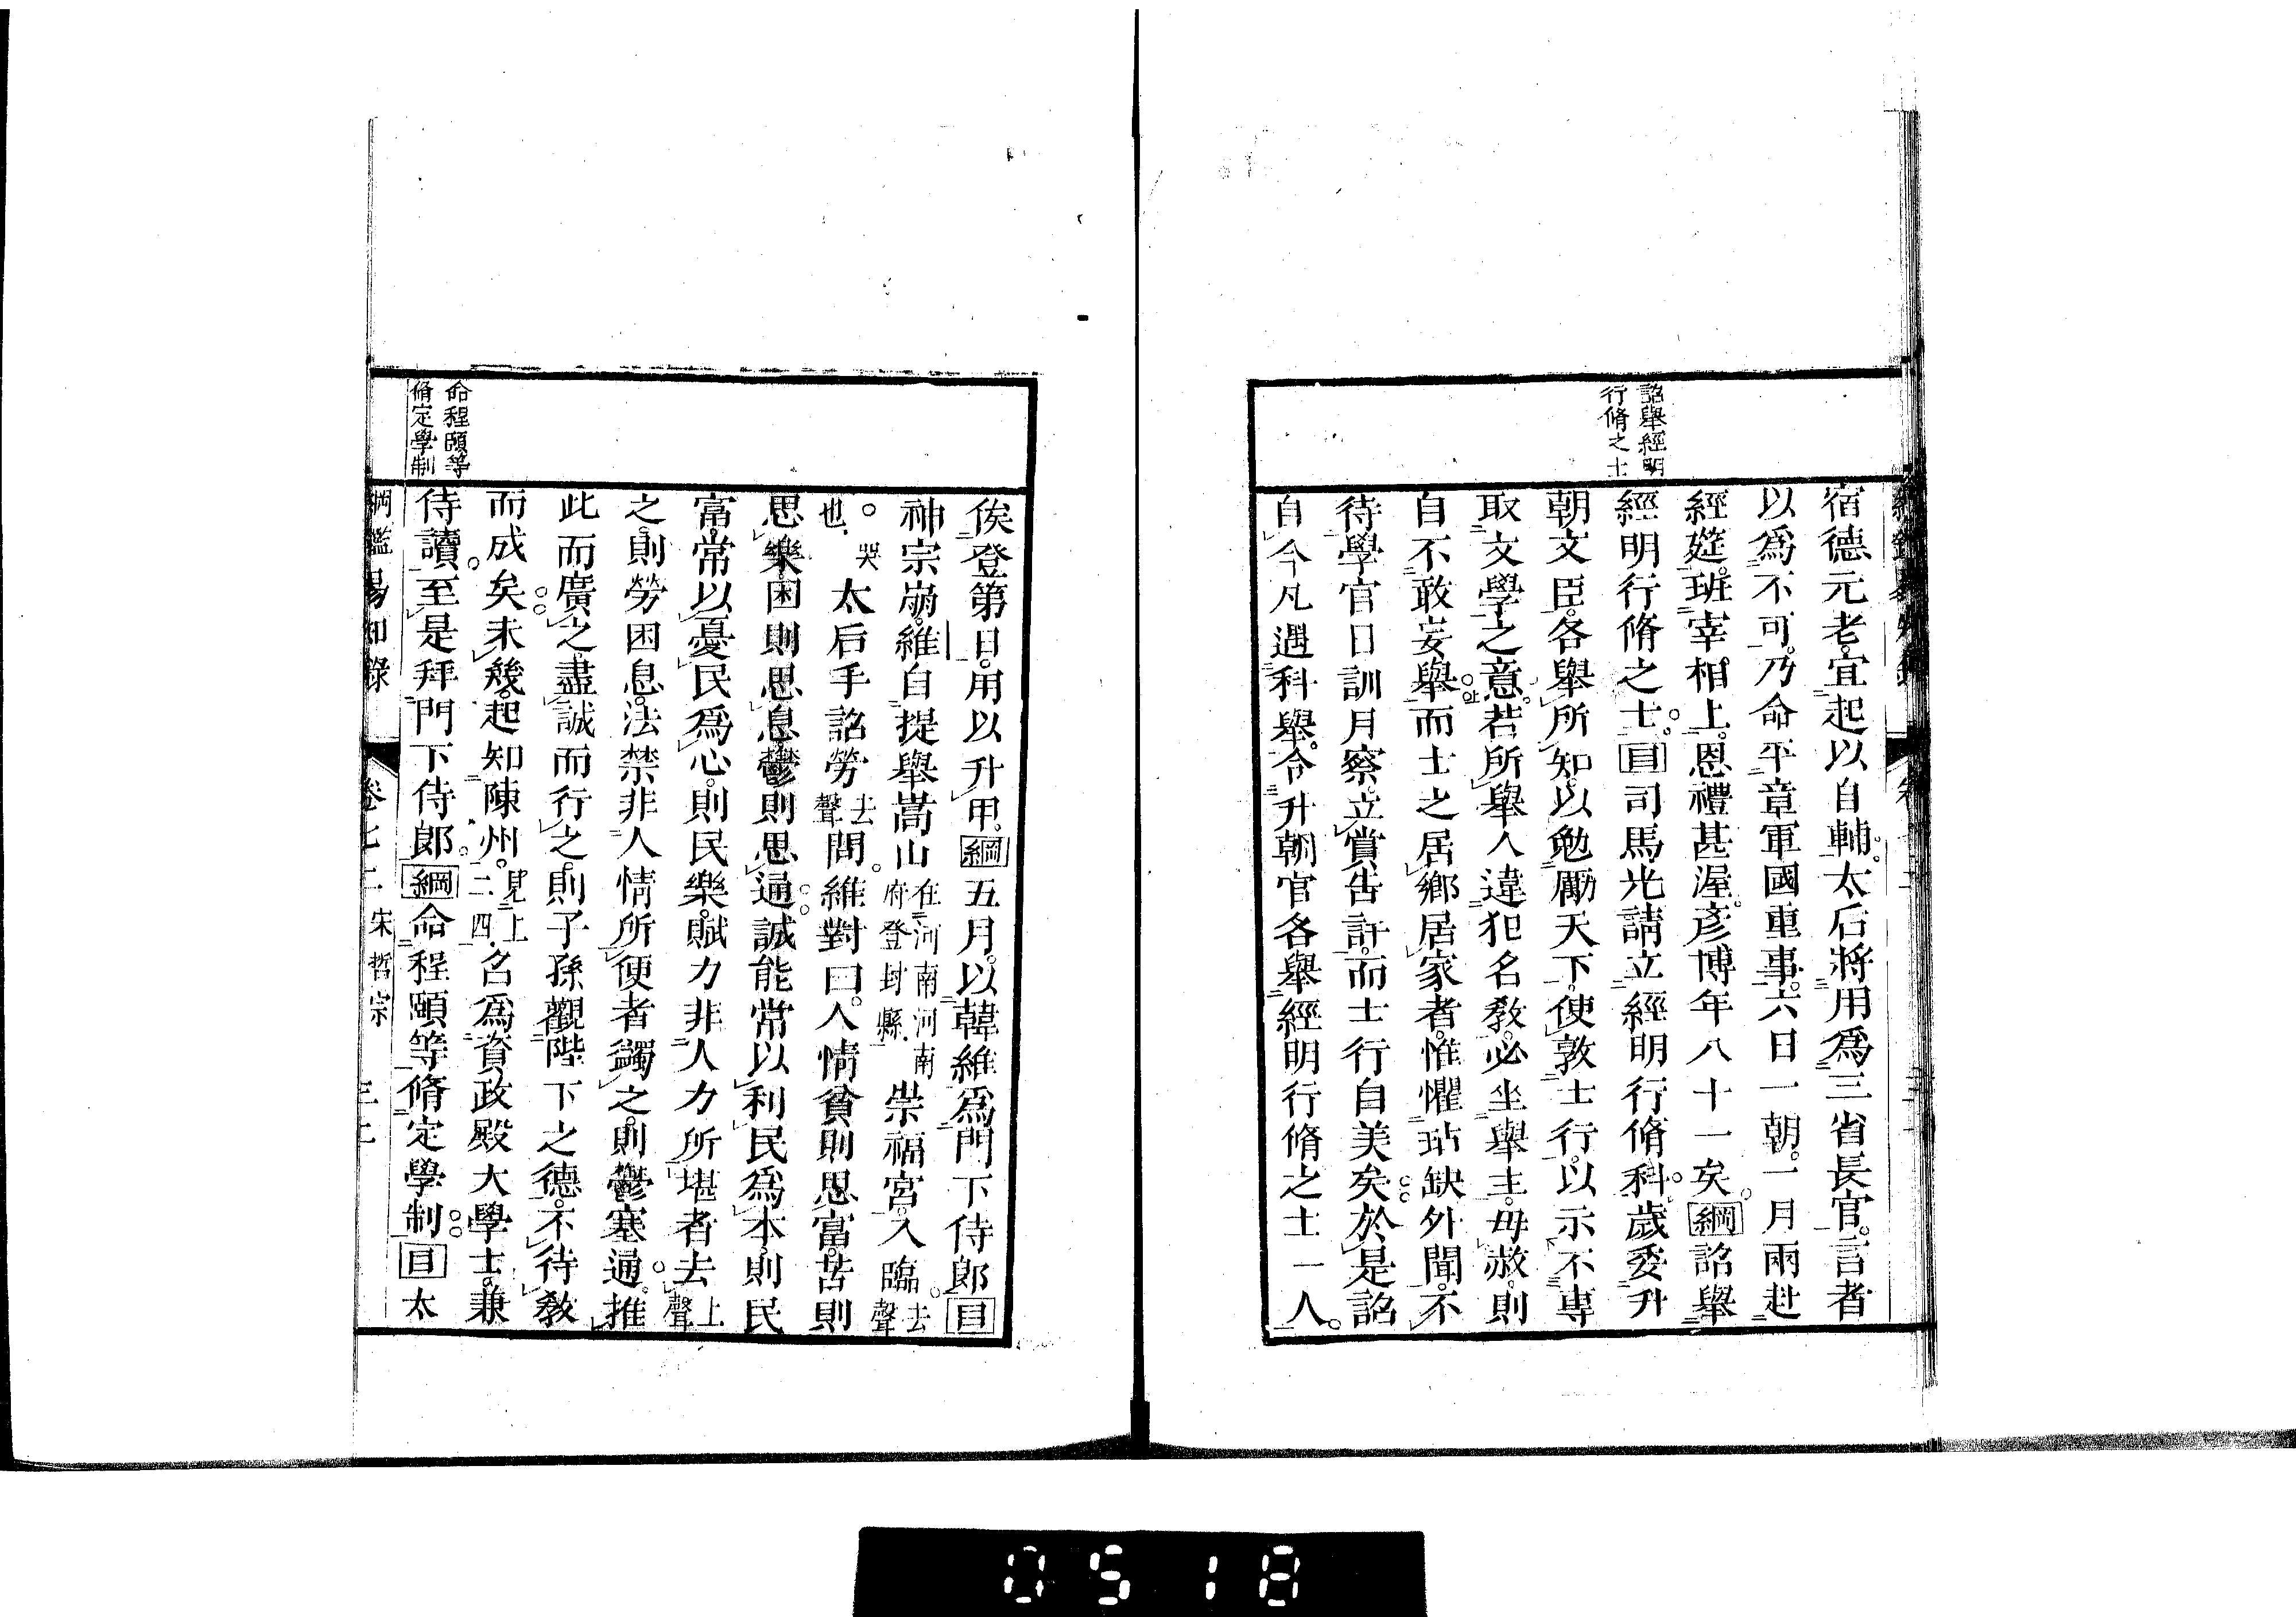 詔舉經明
行脩之士
宿德元老。宜起以自輔。太后將用爲三省長官。言者
以爲不可。乃命平章軍國重事。六日一朝。一月兩赴
經筵。班宰相上。恩禮甚渥。彥博年八十一矣。綱詔舉
經明行脩之士。目司馬光請立經明行脩科。歲委升
朝文臣。各舉所知。以勉勵天下。使敦士行。以示不專
取文學之意。若所舉人違犯名教。必坐舉主。毋赦。則
自不敢妄舉。而士之居鄉居家者。惟懼玷缺外聞。不
待學官日訓月察。立賞告訐。而士行自美矣。於是詔
自今凡遇科舉。令升朝官各舉經明行脩之士一人。
俟登第日。用以升甲。綱五月。以韓維爲門下侍郎目
神宗崩。維自提舉嵩山在河南河南府登封縣.崇福宮。入臨。去聲
。哭也.太后手詔勞去聲問。維對曰。人情貧則思富。苦則
思樂。困則思息。鬱則思通。誠能常以利民爲本。則民
富。常以憂民爲心。則民樂。賦力非人力所堪者去上聲
之。則勞困息。法禁非人情所便者蠲之。則鬱塞通。推
此而廣之。盡誠而行之。則子孫觀陛下之德。不待教
而成矣。未幾。起知陳州。見上二四.召爲資政殿大學士。兼
侍讀。至是拜門下侍郎。綱命程頤等脩定學制目太
命程頤等
脩定學制
綱鑑易知錄 卷七二 宋哲宗
0518